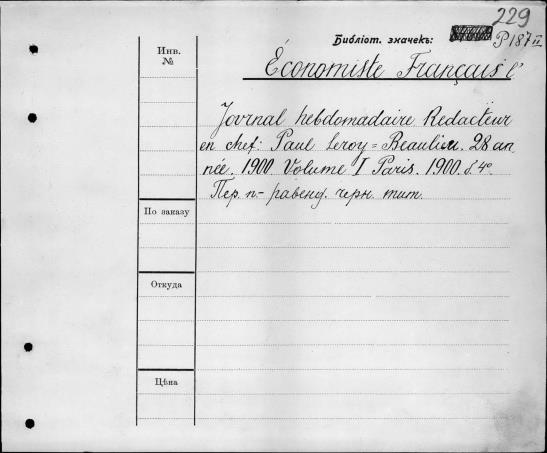 229
Библіот. значекъ: P187 II
Économiste Français l'
Инв.
№
Journal hebdomadaire Redacteur
en chef: Paul Leroy=Beaulieu. 28 an
née. 1900 Volume I Paris. 1900. 4º
Пер. п.- равенд. черн. тит.
По заказу
Откуда
Цѣна